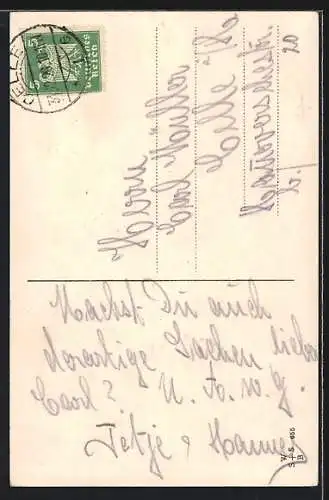 CELLE
Deutsches
Reich
5 5
Herrn
Carl Müller
Celle
Hannoverschestr. 20
Machst Du auch
derartige Sachen lieber
Carl? U. A. w. g.
Tetje &
W
S + S 655
B